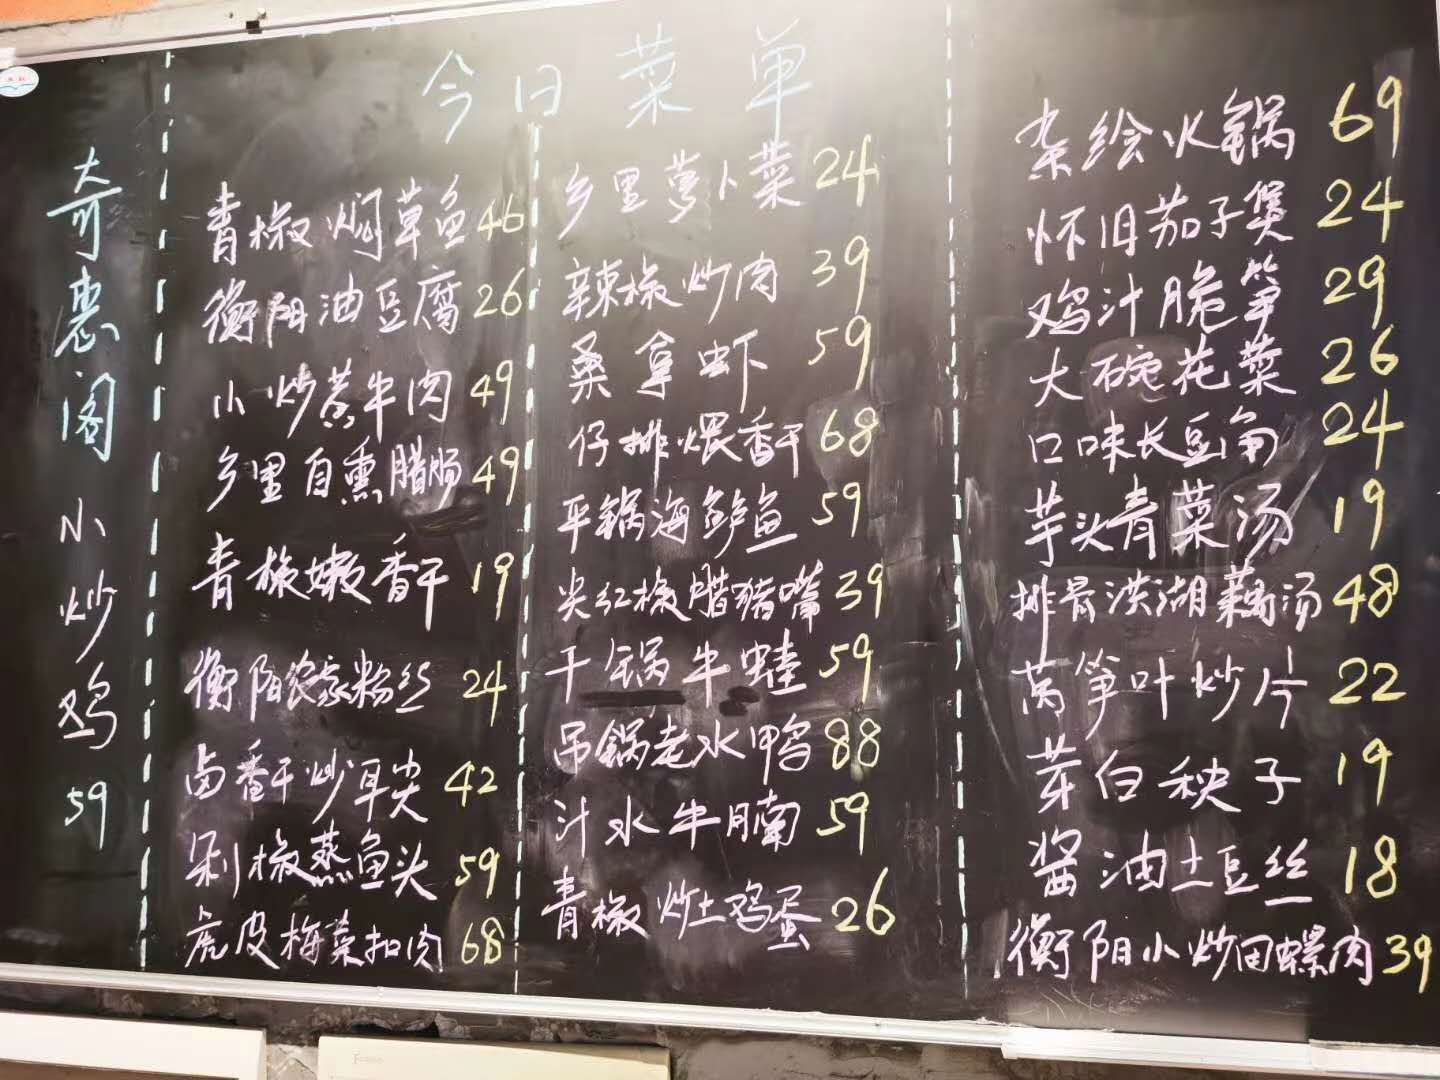 今日菜单
奇惠阁小炒鸡59
青椒焖草鱼46
衡阳油豆腐26
小炒黄牛肉49
乡里自熏腊肠49
青椒嫩香干19
衡阳农家粉丝24
卤香干炒耳尖42
剁椒蒸鱼头59
虎皮梅菜扣肉68
乡里萝卜菜24
辣椒炒肉39
桑拿虾59
仔排煨香干68
平锅海鲈鱼59
尖红椒腊猪嘴39
干锅牛蛙59
吊锅老水鸭88
汁水牛腩59
青椒炒土鸡蛋26
杂绘火锅69
怀旧茄子煲24
鸡汁脆笋29
大碗花菜26
口味长豆角24
芋头青菜汤19
排骨洪湖藕汤48
莴笋叶炒片22
芽白秧子19
酱油土豆丝18
衡阳小炒田螺肉39